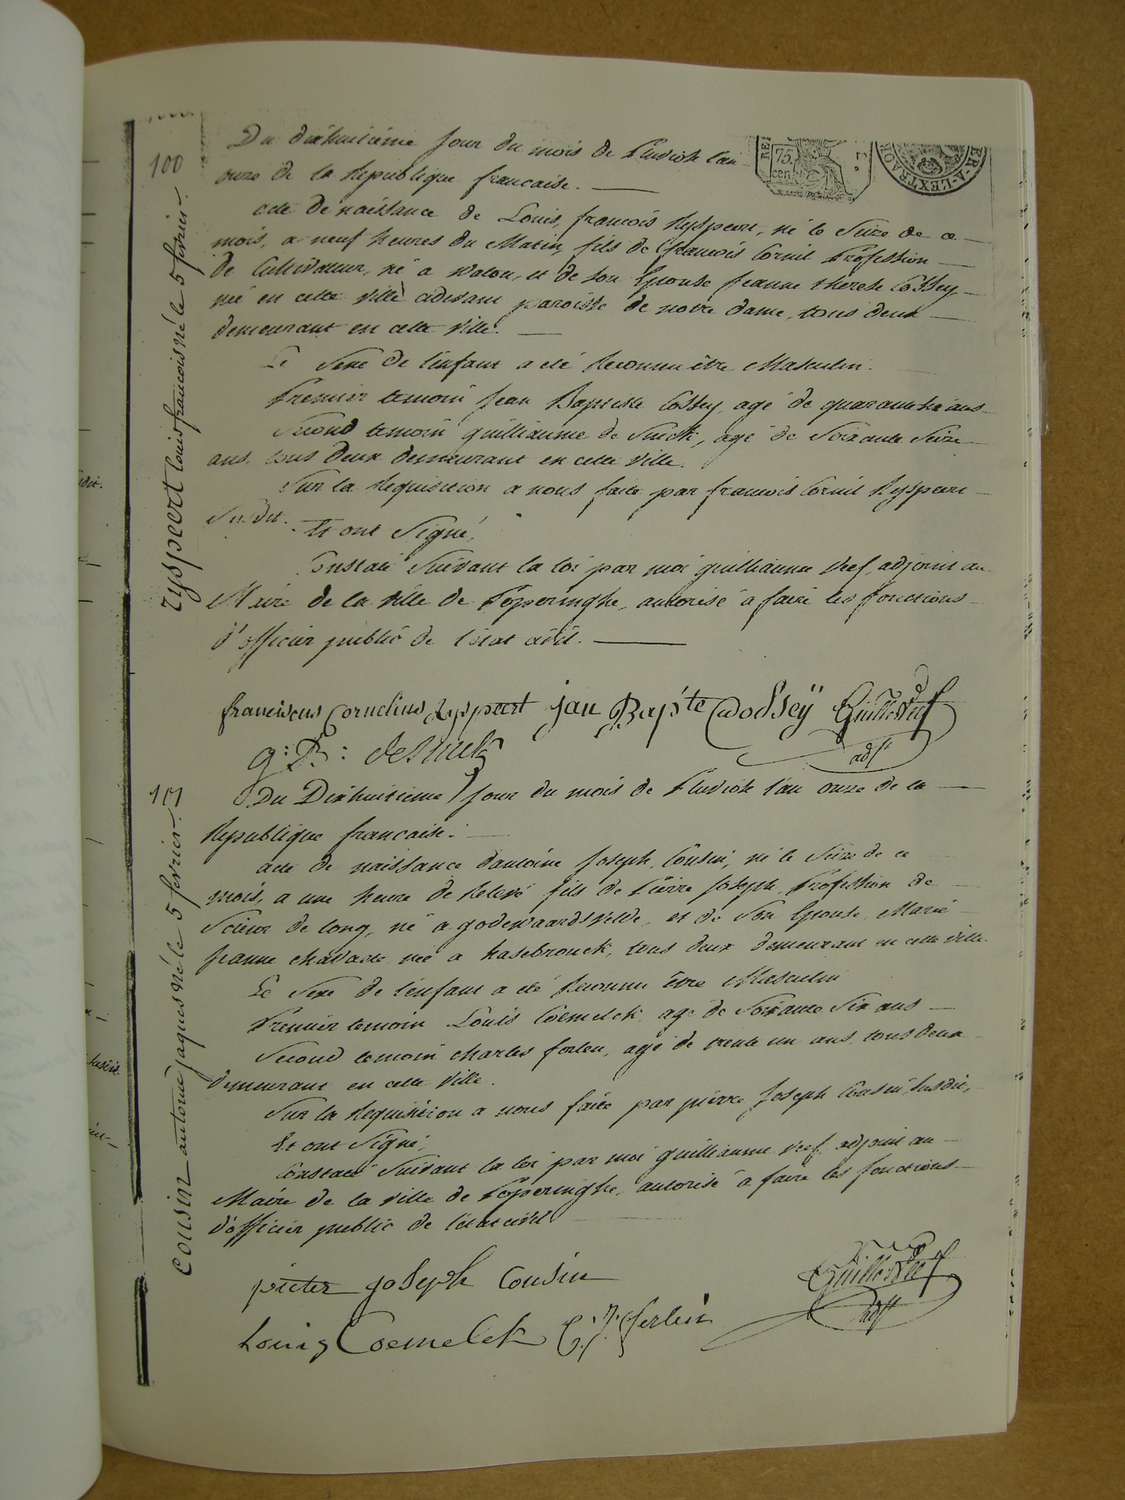 100
Du dixhuitiéme jour du mois de Pluviose l'an
onze de la Republique francaise.
acte de naissance de Louis francois Ryspeert, né le Seize de ce
mois, a neuf heures du Matin, fils de francois Cornil Profession
de Cultivateur, né a Watou, et de son Epouse Jeanne therese Cossey
née en cette ville cidevant paroisse de notre dame, tous deux
demeurant en cette ville.
Le Sexe de l'enfant a eté Reconnu être Masculin.
Premier temoin Jean Baptiste Cossey agé de quarante ans
Second temoin guilliaume de Smidt, agé de Soixante Seize
ans, tous deux demeurant en cette ville.
Sur la Requisition a nous faite par francois Cornil Ryspeert
Susdit.
Et ont Signé,
Constaté Suivant la loi par moi guilliaume Vref, adjoint au
Maire de la ville de Poperinghe, autorisé à faire les fonctions
d'officier public de l'etat civil.
ryspeert louis francois né le 5 fevrier.
franciscus Cornelius Ryspeert jan Bap'te Cossey
adjt
101
Du Dixhuitieme jour du mois de Pluviose l'an onze de la
Republique francaise.
acte de naissance d'antoine Joseph Cousin, né le Seize de ce
mois, a une heure de Relevé fils de Pierre Joseph, Profession de
Scieur de long, né a godewaardsvelde, et de Son Epouse, Marie
Jeanne née a hasebrouck, tous deux demeurant en cette ville.
Le Sexe de l'enfant a eté Reconnu être Masculin
Premier temoin Louis Coemelck agé de Soixante Six ans
Second temoin charles ferlen, agé de trente un ans, tous deux
demeurant en cette ville.
Sur la Requisition a nous faite par pierre Joseph Cousin Susdit,
Et ont Signé,
Constaté Suivant la loi par moi guilliaume Vref, adjoint au
Maire de la ville de Poperinghe, autorisé à faire les fonctions
d'officier public de l'etat civil
cousin antoine jaques né le 5 fevrier.
pieter joseph Cousin
Louis Coemelck
adjt